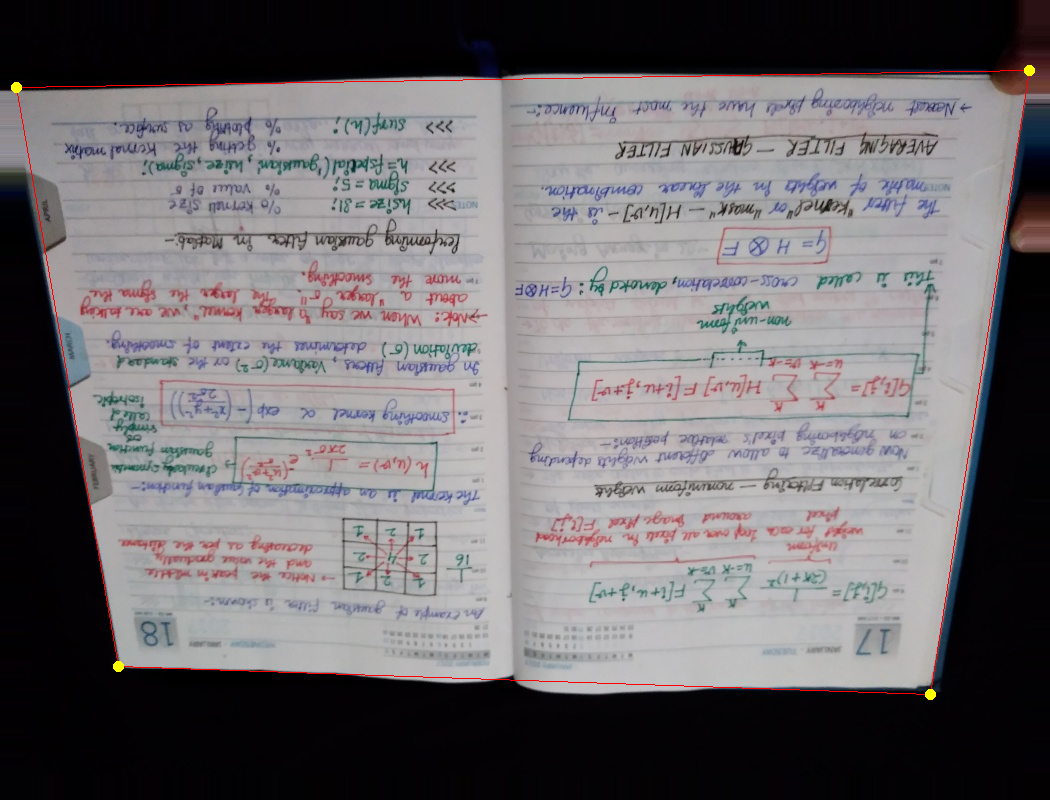 17
JANUARY - TUESDAY
G[i,j] = 1/(2K+1)² Σ(u=-K to K) Σ(v=-K to K) F[i+u, j+v]
uniform
weight for each pixel
loop over all pixels in neighborhood
around image pixel F[i,j]
Correlation Filtering — nonuniform weights
Now generalize to allow different weights depending
on neighboring pixel's relative position:-
G[i,j] = Σ(u=-K to K) Σ(v=-K to K) H[u,v] F[i+u, j+v]
non-uniform
weights
This is called cross-correlation, denoted by: G=H⊗F
G = H ⊗ F
The filter "kernel" or "mask" — H[u,v] — is the
matrix of weights in the linear combination.
AVERAGING FILTER — GAUSSIAN FILTER
→ Nearest neighboring pixels have the most influence:-
18
WEDNESDAY - JANUARY
An example of gaussian filter is shown:-
1/16
1 2 1
2 4 2
1 2 1
→ Notice the peak in middle
and the value gradually
decreasing as per the distance
The kernel is an approximation of Gaussian function:-
h(u,v) = 1/(2πσ²) e^-(u²+v²/σ²)
→ circularly symmetric
gaussian function
or
simply
called
isotropic
∴ smoothing kernel α exp(-(x²+y²/2σ²))
In gaussian filters, Variance (σ²) or the standard
deviation (σ) determines the extent of smoothing.
→ Note: When we say "a larger kernel", we are talking
about a "larger σ". The larger the sigma the
more the smoothing.
Performing gaussian filter in Matlab:-
>>> hsize = 31; % kernel size
>>> sigma = 5; % value of σ
>>> h = fspecial('gaussian', hsize, sigma);
% getting the kernel matrix
>>> surf(h); % plotting as surface.
FEBRUARY
MARCH
APRIL